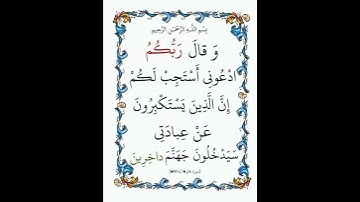 بِسْمِ اللَّهِ الرَّحْمَٰنِ الرَّحِيمِ
وَ قالَ رَبُّكُمُ
ادْعُونِي أَسْتَجِبْ لَكُمْ
إِنَّ الَّذِينَ يَسْتَكْبِرُونَ
عَنْ عِبادَتِي
سَيَدْخُلُونَ جَهَنَّمَ داخِرِينَ